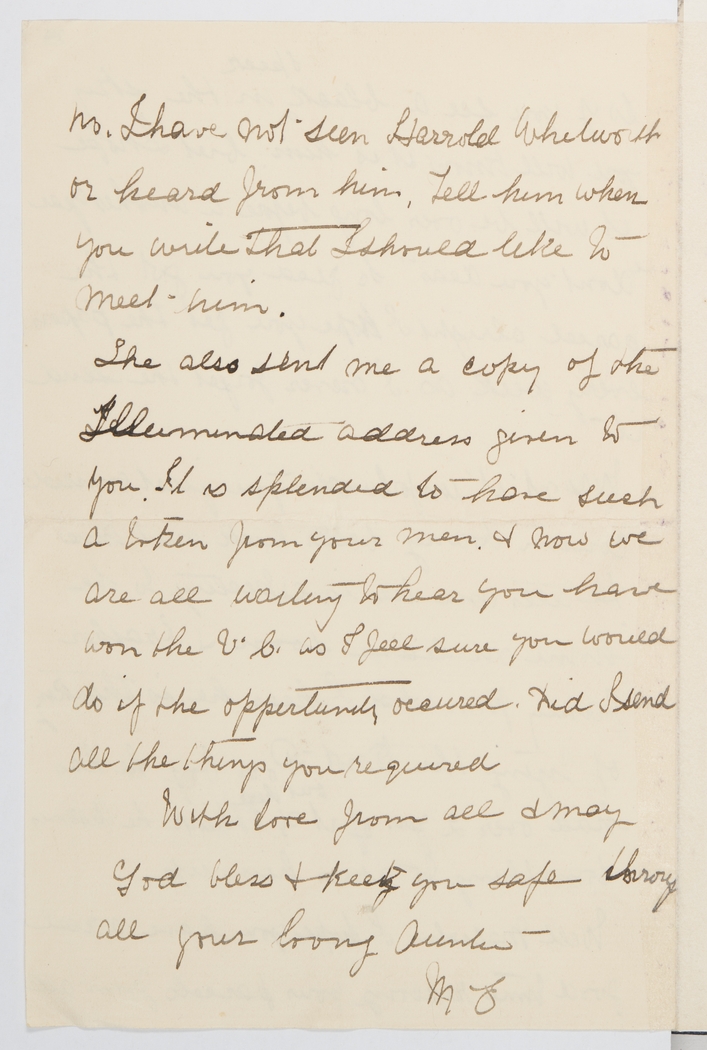 no. I have not seen Harrold Whelworth
or heard from him, Tell him when
you write that I should like to
meet him.
She also sent me a copy of the
Illuminated address given to
you. It is splended to have such
a token from your men. & now we
are all waiting to hear you have
won the V.C. as I feel sure you would
do if the oppertunity occured. Did I send
all the things you required
With love from all & may
God bless & keep you safe throug
all your loving Auntie
M E